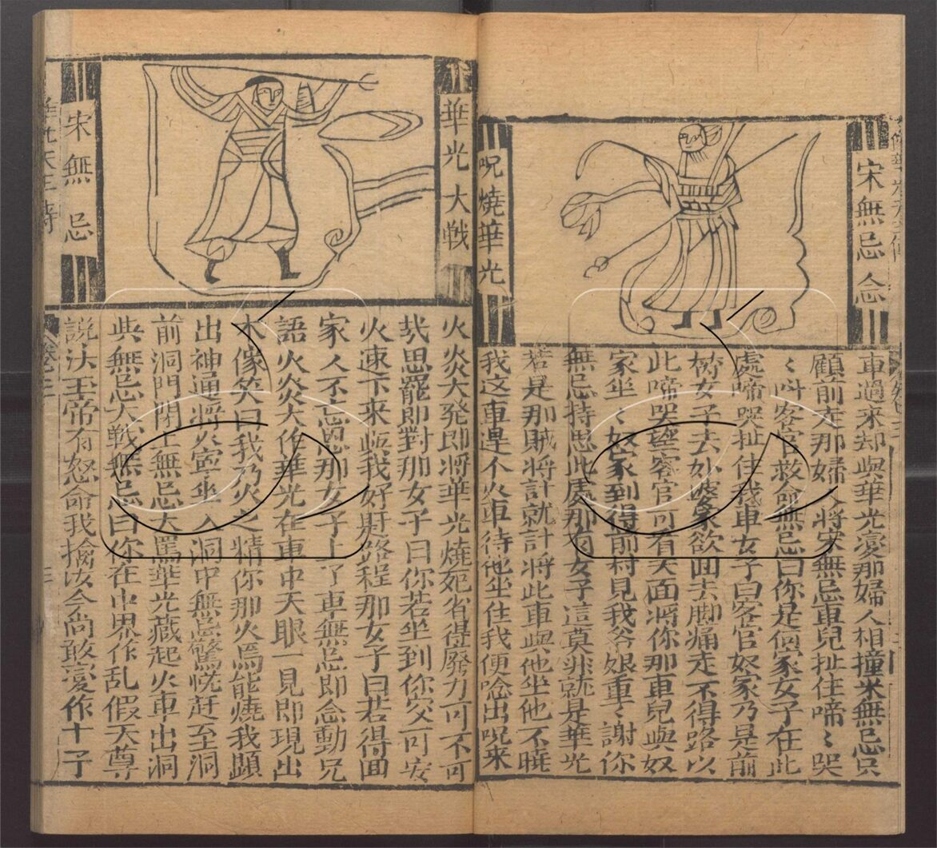 宋無忌念
呪燒華光
車過来却與華光変那婦人相撞宋無忌只
顧前走那婦人將宋無忌車兒扯住啼〻哭
〻叫客官救命無忌曰你是個家女子在此
處啼哭扯住我車女子曰客官奴家乃是前
村女子去外婆家欲回去脚痛走不得路以
此啼哭望客官可看天面將你那車兒與奴
家坐〻奴家到得前村見我爺娘重〻謝你
無忌持思此處那有女子這莫非就是華光
若是那賊將計就計將此車與他坐他不曉
我这車是个火車待他坐住我便唸出呪来
華光大戦
宋無忌
火炎大発即將華光燒死省得廢力可不可
哉思罷即對那女子曰你若坐到你家可安
火速下来与我好趕路程那女子曰若得回
家人不忘恩那女子上了車無忌即念動咒
語火炎大作華光在車中天眼一見即現出
本像笑曰我乃火之精你那火焉能燒我顕
出神通將火車坐入洞中無忌驚慌赶至洞
前洞門閉上無忌大罵華光藏起火車出洞
與無忌大戦無忌曰你在中界作乱假天尊
説法玉帝有怒命我擒汝今尚敢変作女子